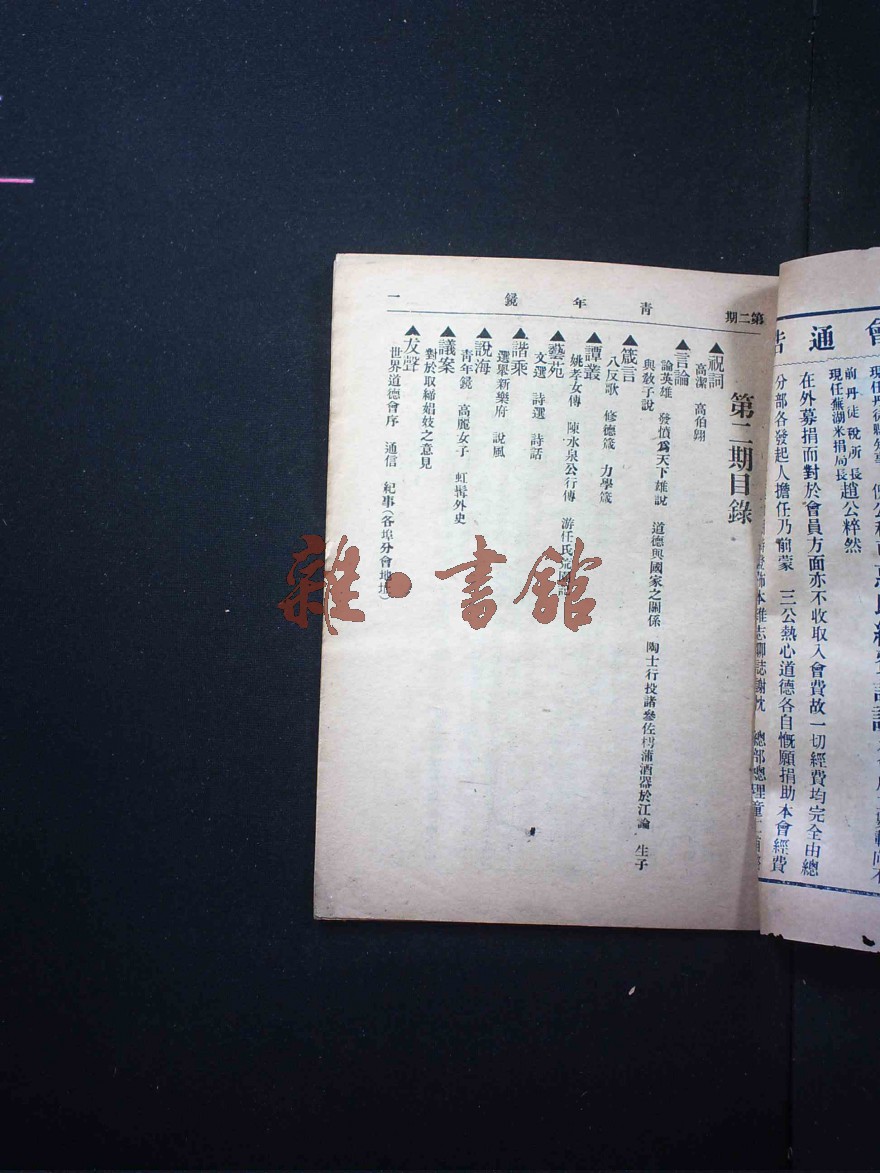 會通告
前丹徒稅所長趙公粹然
現任蕪湖米捐局長
在外募捐而對於會員方面亦不收取入會費故一切經費均完全由總
分部各發起人擔任乃前蒙　三公熱心道德各自慨願捐助本會經費
本雜志聊誌謝忱　總部總理
第二期　青年鏡　一
第二期目錄
▲祝詞
高潔　高伯翔
▲言論
論英雄　發憤爲天下雄說　道德與國家之關係　陶士行投諸參佐樗蒲酒器於江論　生子
與敎子說
▲箴言
八反歌　修德箴　力學箴
▲譚叢
姚孝女傳　陳水泉公行傳　游任氏
▲藝苑
文選　詩選　詩話
▲諧乘
選舉新樂府　說風
▲說海
青年鏡　高麗女子　虹髯外史
▲議案
對於取締娼妓之意見
▲友聲
世界道德會序　通信　紀事（各埠分會地址）
雜·書館